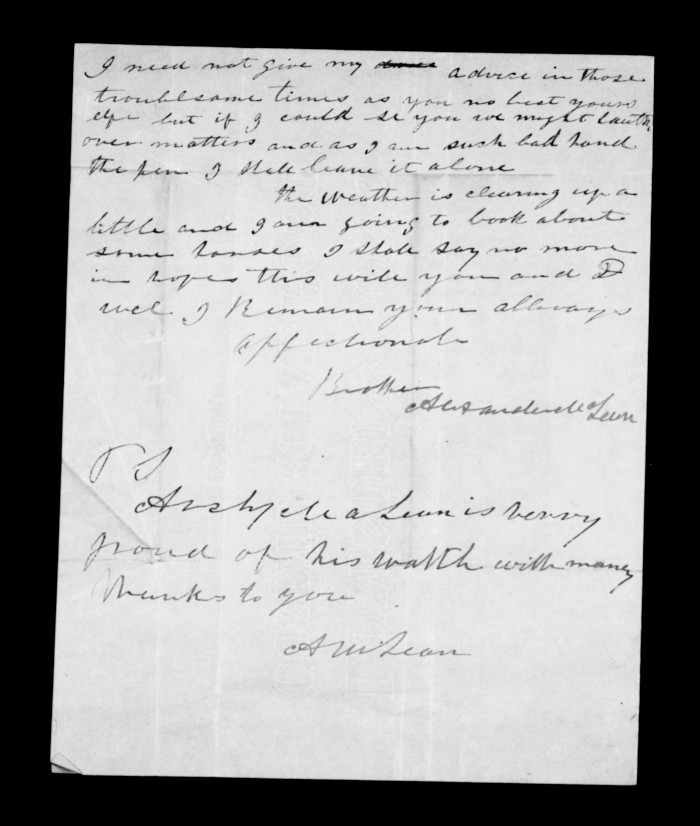 I need not give my advice in those
troublesome times as you no best yours
elfe but if I could se you we might
over matters and as I am such bad hand
the pen I shale leave it alone
the weather is clearing up a
little and I am going to look about
some horses I shale say no more
in hopes this will you and D
wel I Remain your allways
affectionate
Brother
Alexander McLean
P S
Archy McaLean is verry
proud of his watth with maney
thanks to you
A McLean